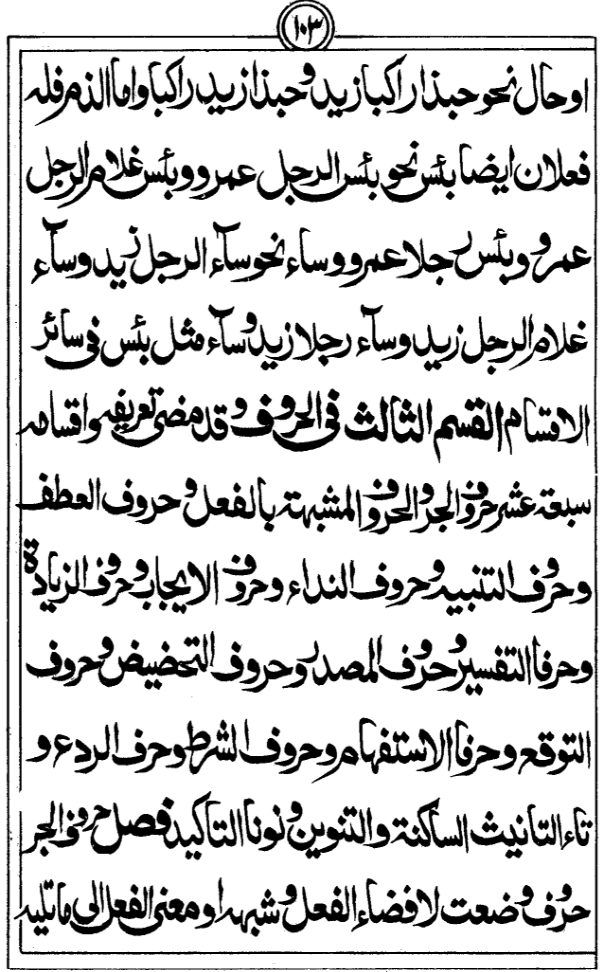 ١٠٣
او حال نحو حبذا راكبا زيد وحبذا زيد راكبا واما الذم فله
فعلان ايضا بئس نحو بئس الرجل عمرو وبئس غلام الرجل
عمرو وبئس رجلا عمرو وساء نحو سآء الرجل زيد وسآء
غلام الرجل زيد وسآء رجلا زيد وسآء مثل بئس فى سائر
الاقسام القسم الثالث فى الحروف وقد مضى تعريفه واقسامه
سبعة عشر حروف الجر والحروف المشبهة بالفعل وحروف العطف
وحروف التنبيه وحروف النداء وحروف الايجاب وحروف الزيادة
وحرفا التفسير وحروف المصدر وحروف التحضيض وحروف
التوقع وحرفا الاستفهام وحروف الشرط وحرف الردع و
تاء التانيث الساكنة والتنوين ونونا التاكيد فصل حروف الجر
حروف وضعت لافضاء الفعل وشبهه او معنى الفعل الى ما تليه